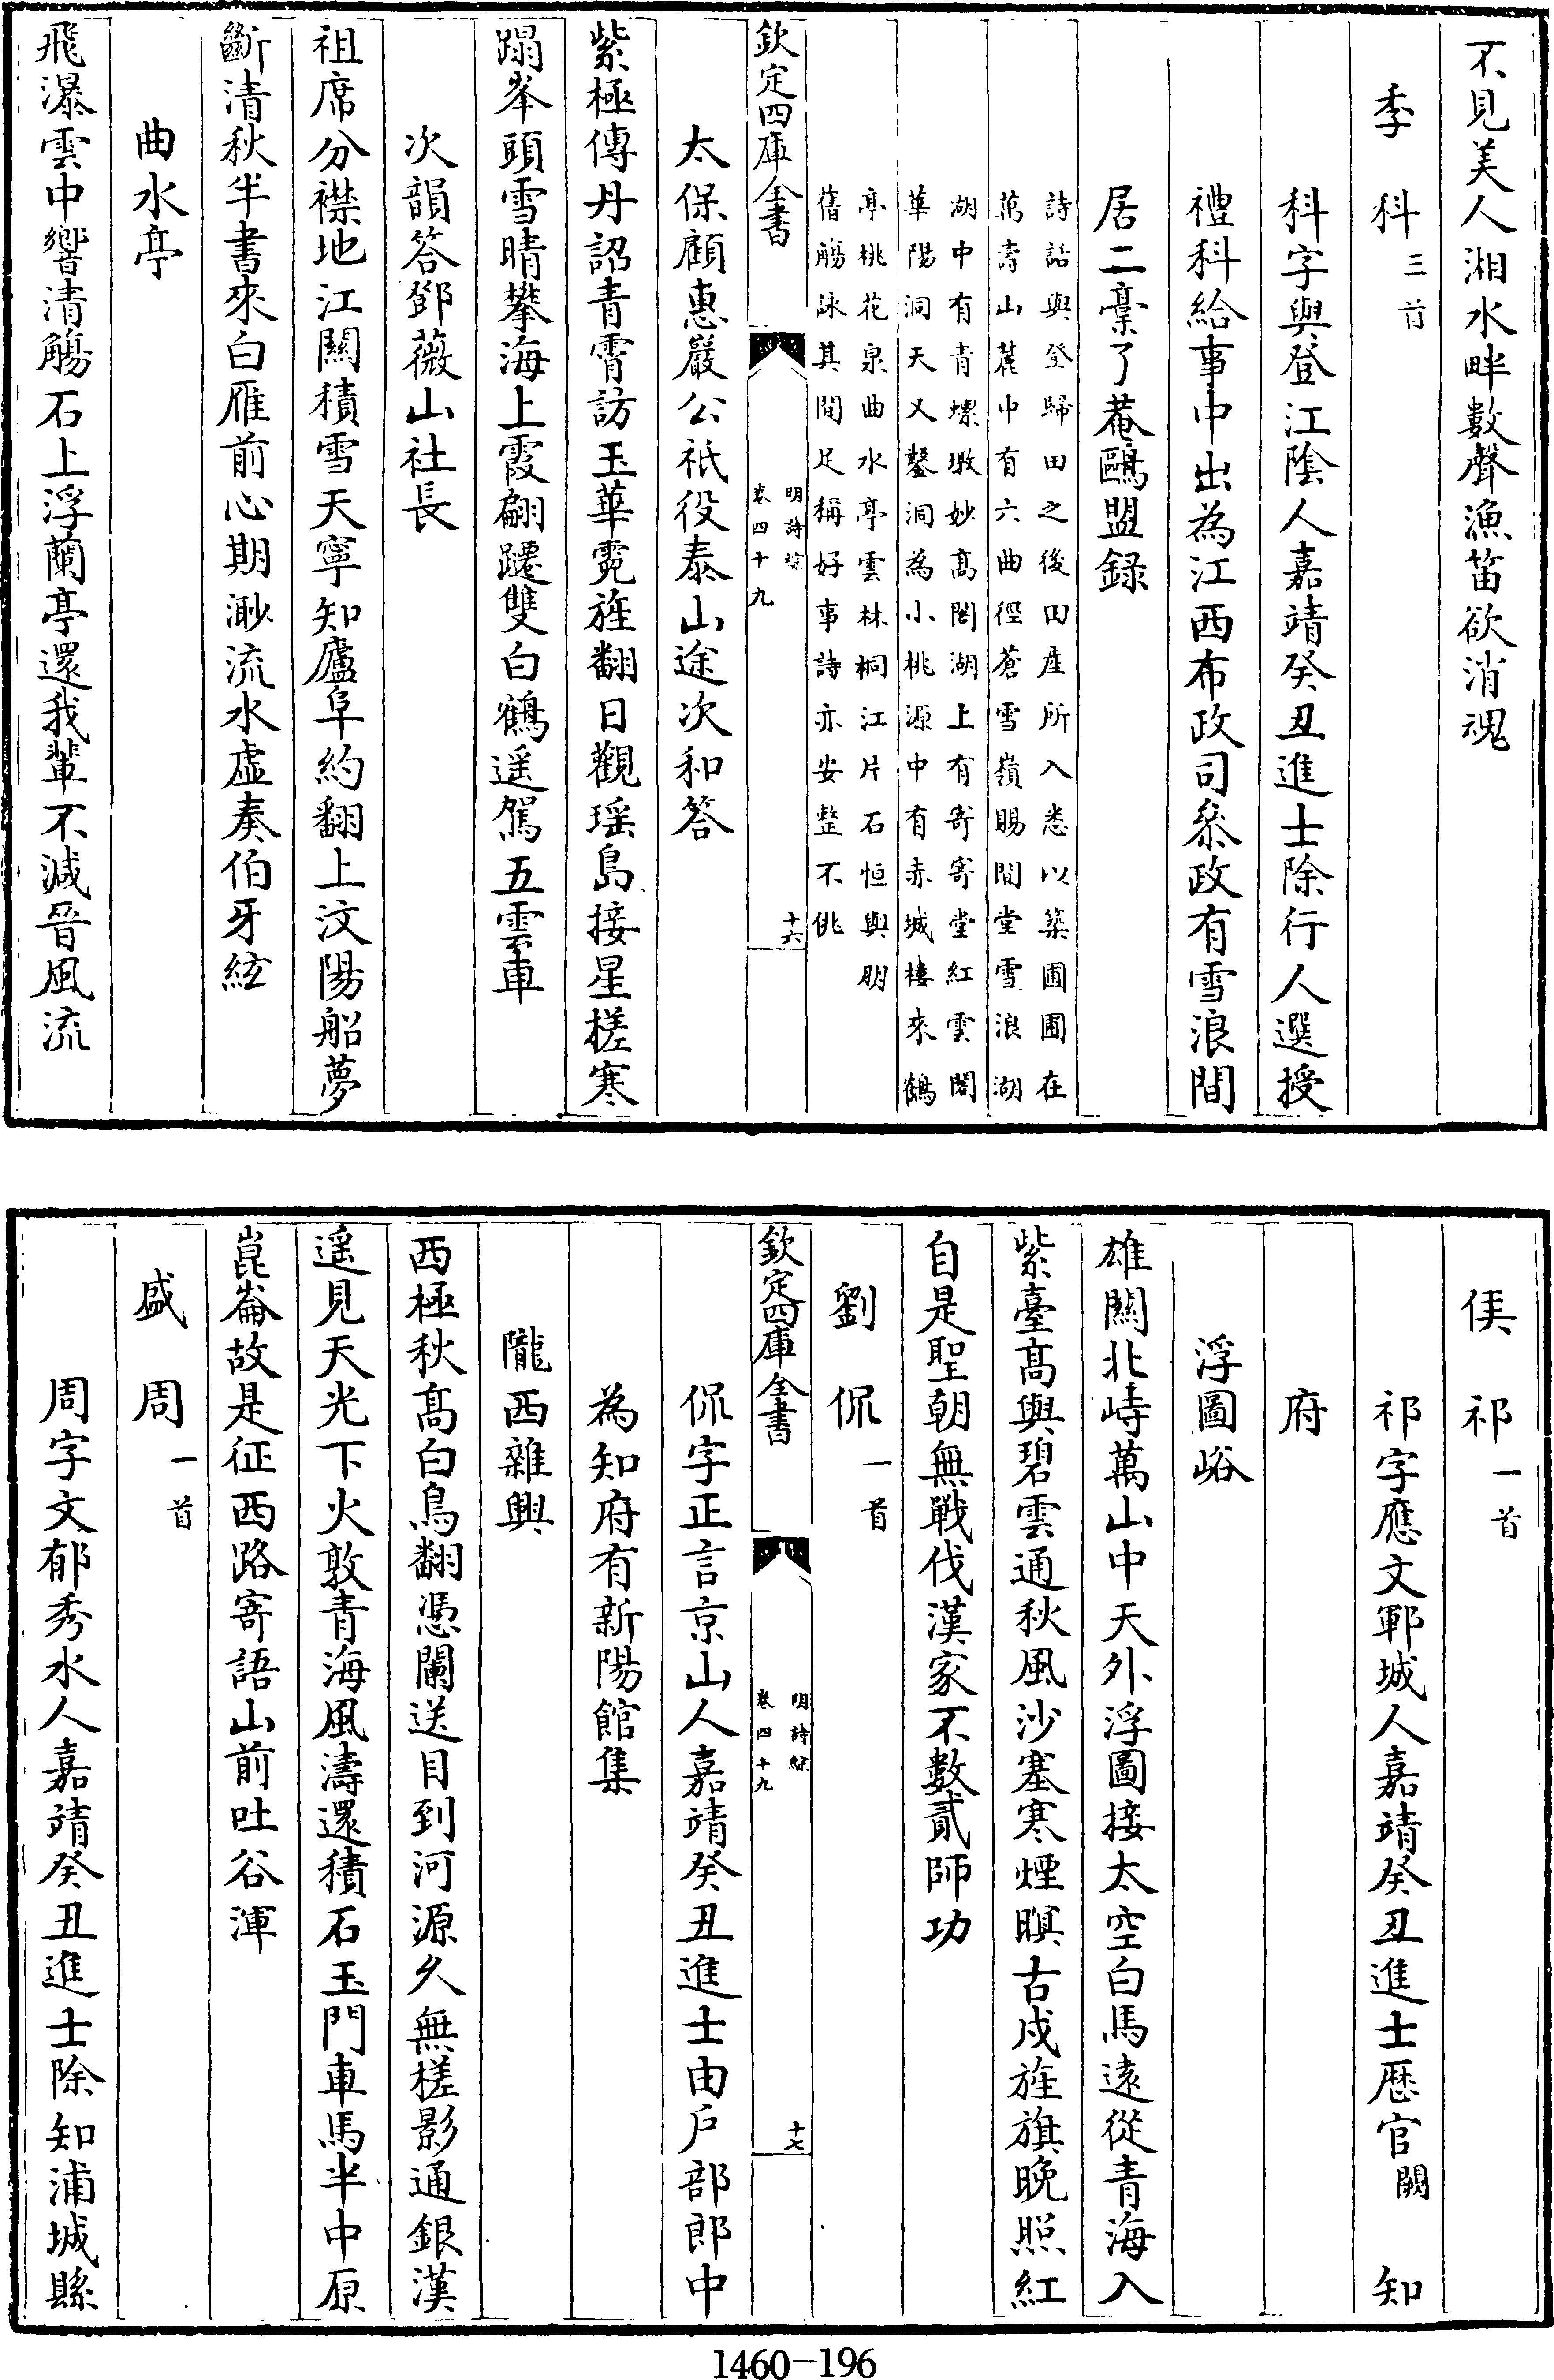 不見美人湘水畔數聲漁笛欲消魂
季科三首
科字與登江陰人嘉靖癸丑進士除行人選授
禮科給事中出為江西布政司叅政有雪浪間
居二稾了菴鷗盟録
詩話與登歸田之後田産所入悉以築圃圃在
萬壽山麓中有六曲徑蒼雪嶺賜間堂雪浪湖
湖中有青螺墩妙髙閣湖上有寄寄堂紅雲閣
華陽洞天又鑿洞為小桃源中有赤城樓來鶴
亭桃花泉曲水亭雲林桐江片石恒與朋
舊觴詠其間足稱好事詩亦安整不佻
欽定四庫全書
明詩綜
卷四十九
十六
太保顧惠巖公祇役泰山途次和答
紫極傳丹詔青霄訪玉華霓旌翻日觀瑶島接星槎寒
蹋峯頭雪晴攀海上霞翩躚雙白鶴遥駕五雲車
次韻答鄧薇山社長
祖席分襟地江關積雪天寧知廬阜約翻上汶陽船夢
斷清秋半書來白雁前心期渺流水虛奏伯牙絃
曲水亭
飛瀑雲中響清觴石上浮蘭亭還我輩不減晉風流
侯祁一首
祁字應文鄆城人嘉靖癸丑進士歴官闕知
府
浮圖峪
雄關北峙萬山中天外浮圖接太空白馬遠從青海入
紫臺髙與碧雲通秋風沙塞寒煙暝古戍旌旗晚照紅
自是聖朝無戰伐漢家不數貳師功
劉侃一首
欽定四庫全書
明詩綜
卷四十九
十七
侃字正言京山人嘉靖癸丑進士由户部郎中
為知府有新陽館集
隴西雜興
西極秋髙白鳥翻憑闌送目到河源久無槎影通銀漢
遥見天光下火敦青海風濤還積石玉門車馬半中原
崑崙故是征西路寄語山前吐谷渾
盛周一首
周字文郁秀水人嘉靖癸丑進士除知浦城縣
1460-196